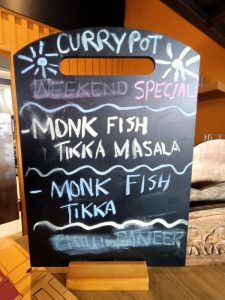 CURRYPOT
WEEKEND SPECIAL
- MONK FISH
TIKKA MASALA
- MONK FISH
TIKKA
CHILLI PANEER